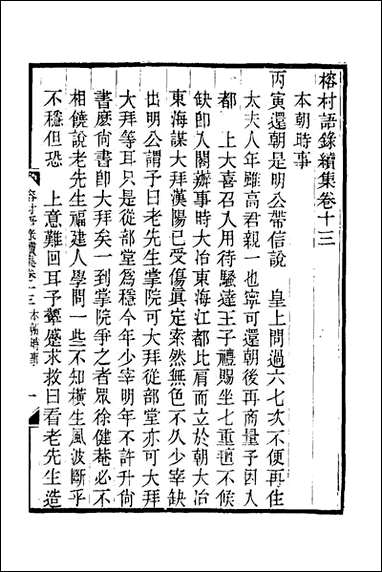 榕村語錄續集卷十三
本朝時事
丙寅還朝是明公帶信說　皇上問過六七次不便再住
太夫八年雖高君親一也寧可還朝後再商量予因入
都　上大喜召入用待騷達王子禮賜坐七重氊不候
缺卽入閣辦事時大冶東海江都比肩而立於朝大冶
東海謀大拜漢陽已受傷眞定索然無色不久少宰缺
出明公謂予曰老先生掌院可大拜從部堂亦可大拜
大拜等耳只是從部堂爲穩今年少宰明年不許升尙
書麽尙書卽大拜矣一到掌院爭之者眾徐健菴必不
相饒說老先生福建人學問一些不知橫生風波斷乎
不穩但恐　上意難回耳予顰蹙求救曰看老先生造
榕村語錄續集卷十三　本朝時事　一